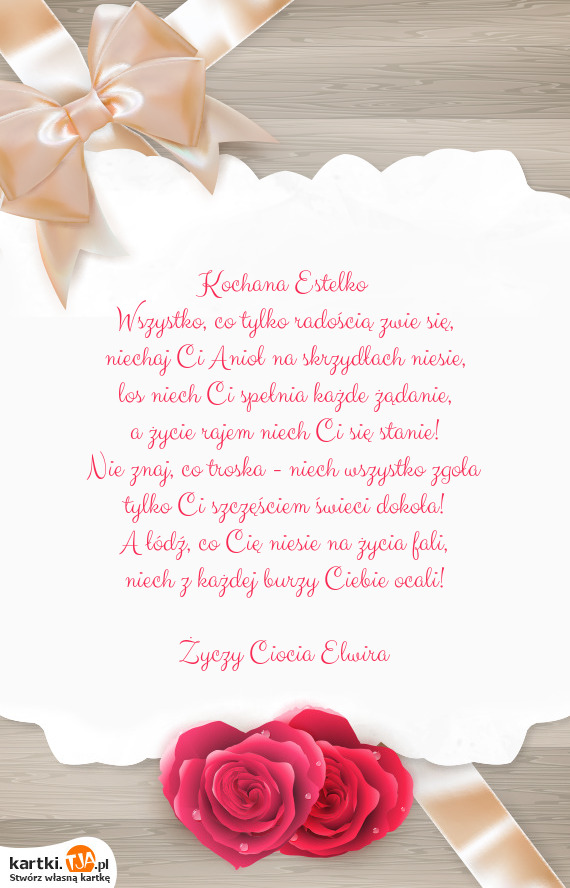 Kochana Estelko
Wszystko, co tylko radością zwie się,
niechaj Ci Anioł na skrzydłach niesie,
los niech Ci spełnia każde żądanie,
a życie rajem niech Ci się stanie!
Nie znaj, co troska - niech wszystko zgoła
tylko Ci szczęściem świeci dokoła!
A łódź, co Cię niesie na życia fali,
niech z każdej burzy Ciebie ocali!
Życzy Ciocia Elwira
kartki.TJA.pl
Stwórz własną kartkę